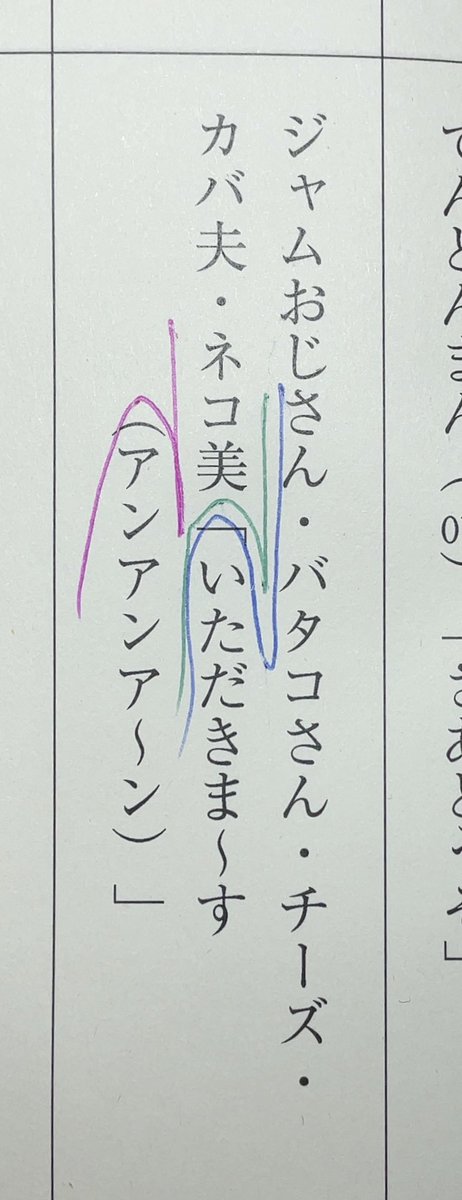 てんどんまん(OFF)「さあどうぞ」
ジャムおじさん・バタコさん・チーズ・
カバ夫・ネコ美「いただきま〜す
(アンアンア〜ン)」